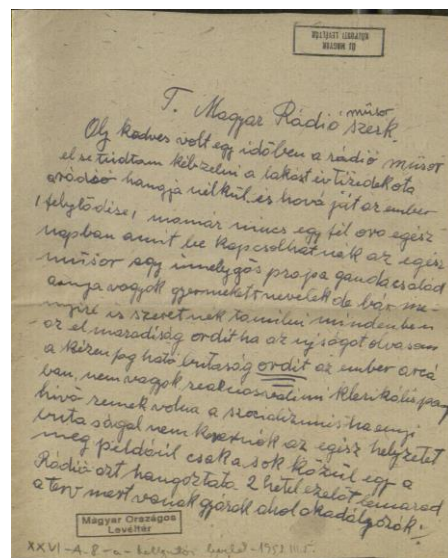 ÚJ MAGYAR
KÖZPONTI LEVÉLTÁR
T. Magyar Rádió műsor szerk.
Olj kedves volt egy időben a rádió műsor
el se tudtam képzelni a lakást évtizedek óta
a rádió hangja nélkül és hová jut az ember
fejlődése, ma már nincs egy fél ora egész
napban amit be kapcsolhatnák az egész
műsor egy émelygős propa ganda család
anya vagyok gyermeket nevelek de bár me-
nyire is szeretnék tanulni mindenben
az el maradiság ordit ha az ujságot olvasom
a kézen fog ható butaság ordit az ember arcá
ban, nem vagyok reakcios valami klerikális
hivő remek volna a szocializmus ha enyi
butasággal nem az egész helyzetet
meg például csak a sok közül egy a
Rádió azt hangoztata 2 hétel ezelőt lemarad
a terv mert vanak gyárak ahol akadályozók.
Magyar Országos
Levéltár
XXVI-A-8-a - 1952